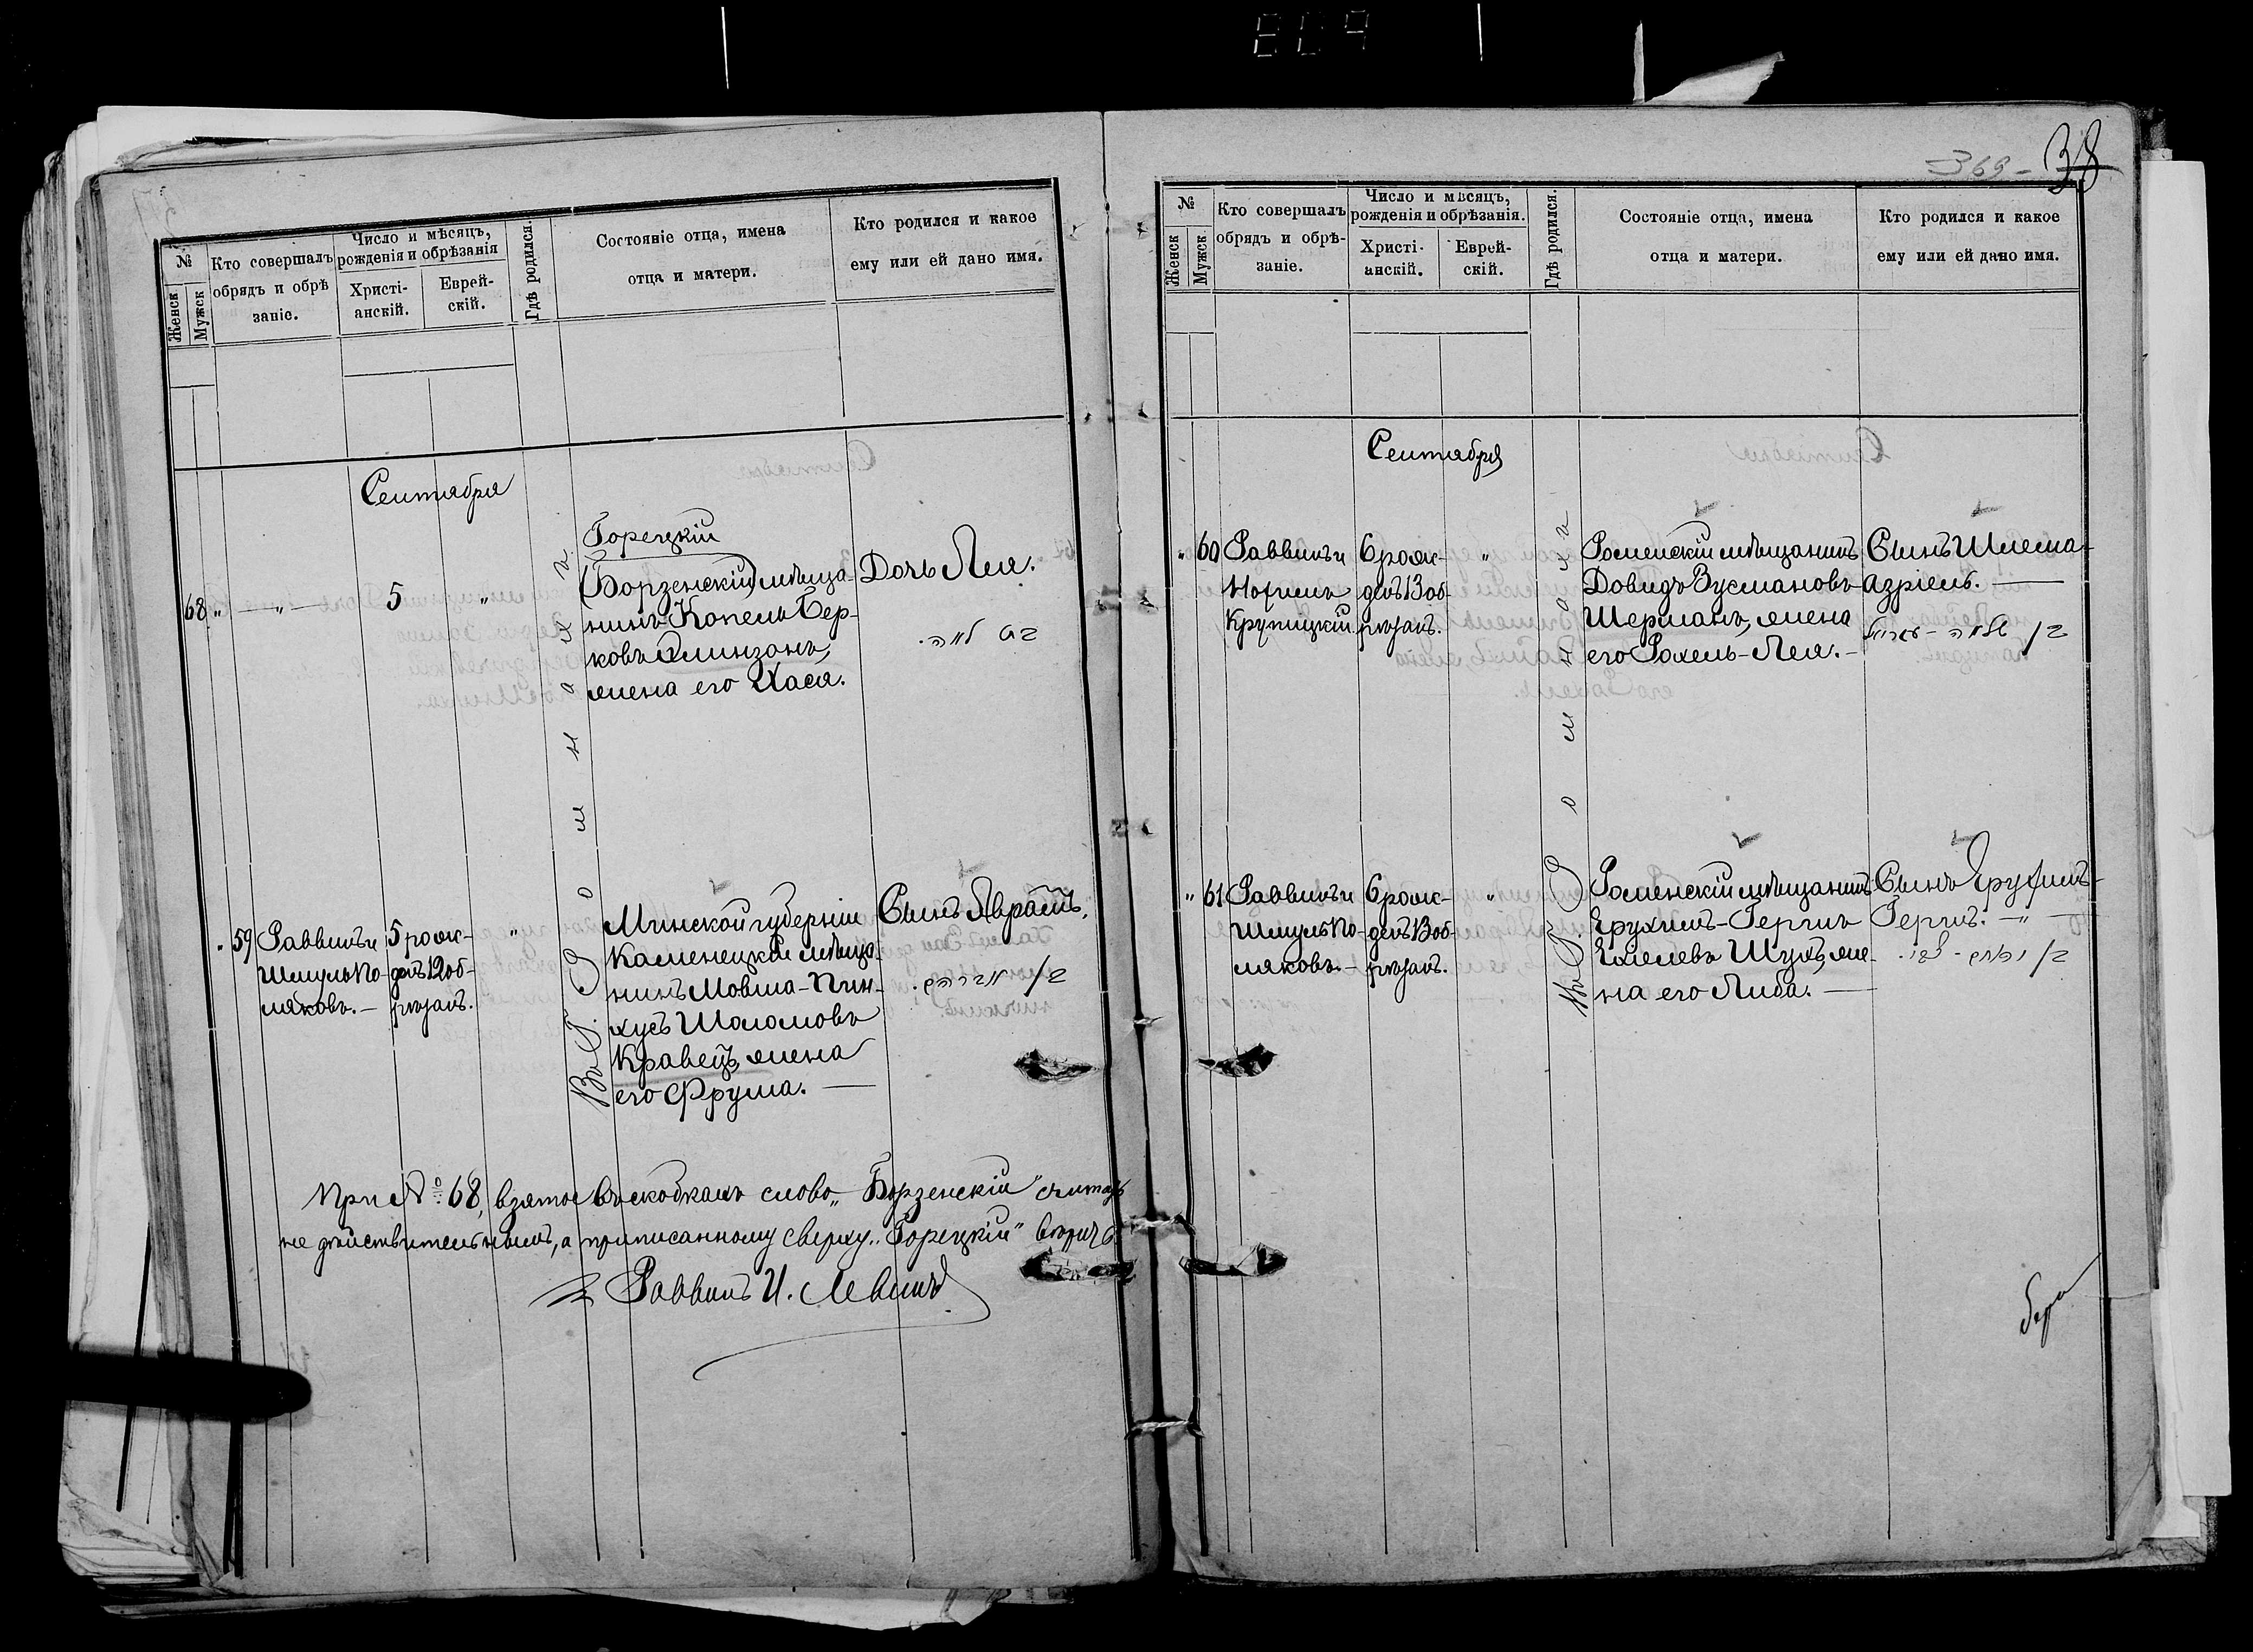 809
№
Женск
Мужск
Кто совершалъ
обрядъ и обрѣ
заніе.
Число и мѣсяцъ,
рожденія и обрѣзанія
Христі-
анскій.
Еврей-
скій.
Гдѣ родился.
Состояніе отца, имена
отца и матери.
Кто родился и какое
ему или ей дано имя.
Сентября
68 „ — „ — 5 „
Горецкій
(Борзенскій) мѣща-
нинъ Копель Бер-
ковъ Элинзонъ,
жена его Хася.
Дочь Лея.
בת לאה.
„ 59
Раввинъ и
Шмуль По-
ляковъ. —
5 рож-
денъ 12 об-
рѣзанъ.
„
Въ Г. Ромнахъ
Минской губерніи
Каменецкій мѣща-
нинъ Мовша-Пин-
хусъ Шоломовъ
Кравецъ, жена
его Фрума. —
Сынъ Аврамъ.
ב/ אברהם.
При № 68, взятое въ скобкахъ слово „Борзенскій" считать
не дѣйствительнымъ, а приписанному сверху „Горецкій" вѣрить
Раввинъ И. Левинъ
369 - 38
№
Женск
Мужск
Кто совершалъ
обрядъ и обрѣ-
заніе.
Число и мѣсяцъ,
рожденія и обрѣзанія.
Христі-
анскій.
Еврей-
скій.
Гдѣ родился.
Состояніе отца, имена
отца и матери.
Кто родился и какое
ему или ей дано имя.
Сентября
„ 60
Раввинъ и
Нохимъ
Крупицкій.
6 рож-
денъ 13 об-
рѣзанъ.
„
Въ Г. Ромнахъ
Роменскій мѣщанинъ
Довидъ Зусмановъ
Шерманъ, жена
его Рохель-Лея. —
Сынъ Шлема-
Азріель. —
ב/ שלמה - עזריאל
„ 61
Раввинъ и
Шмуль По-
ляковъ. —
6 рож-
денъ 13 об-
рѣзанъ.
„
Роменскій мѣщанинъ
Ерухимъ-Герцъ
Шухъ, же-
на его Либа. —
Сынъ Ерухимъ-
Герцъ. — „ —